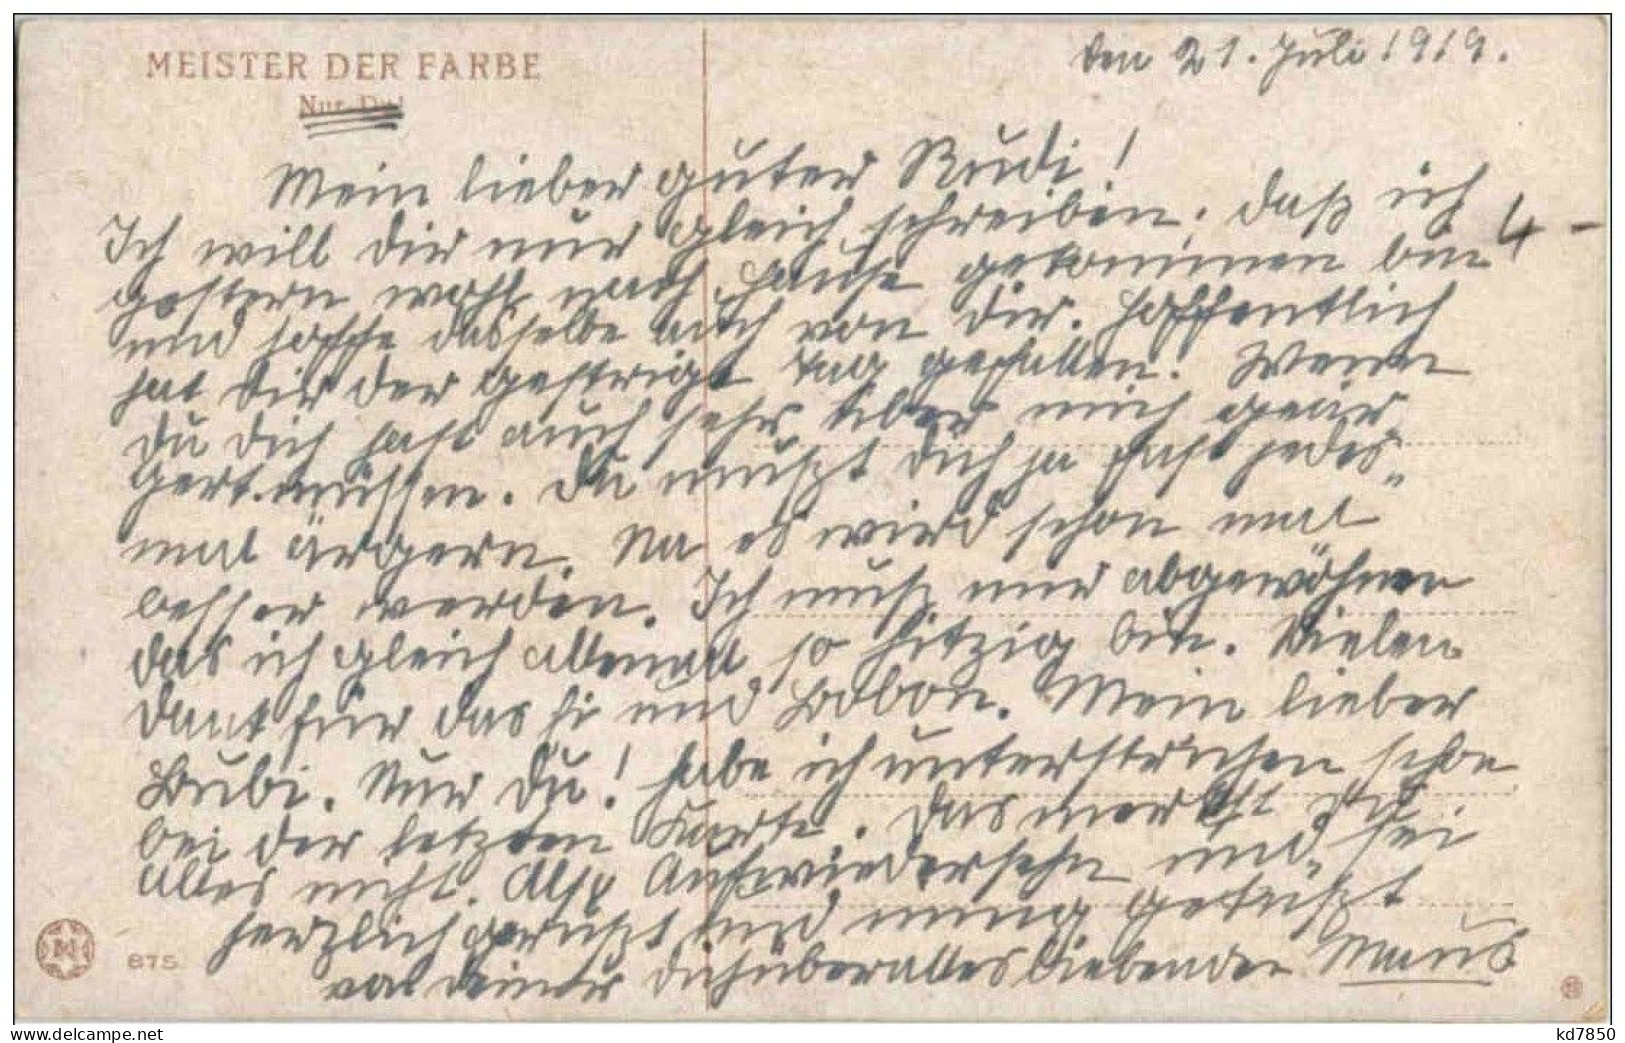 MEISTER DER FARBE
Nur Du!
den 21. Juli 1919.
Mein lieber guter Rudi!
Ich will dir nur gleich schreiben, daß ich
4 -
gestern wohl nach Hause gekommen bin
und hoffe dasselbe auch von dir. Hoffentlich
hat dir der gestrige Tag gefallen. Wenn
du dich hast auch sehr über mich geär
gert müssen. Du mußt dich ja fast jedes-
mal ärgern. Na es wird schon mal
besser werden. Ich muß mir abgewöhnen
das ich gleich allemall so hitzig bin. Vielen
Dank für das und Bobon. Mein lieber
Bubi. Nur Du! habe ich unterstrichen schon
bei der letzten Karte. Das merkst du
alles nicht. Also Aufwiedersehn und sei
herzlich gerüßt und innig geküßt
von deiner dichüberallesliebenden Maus
875
kd7850